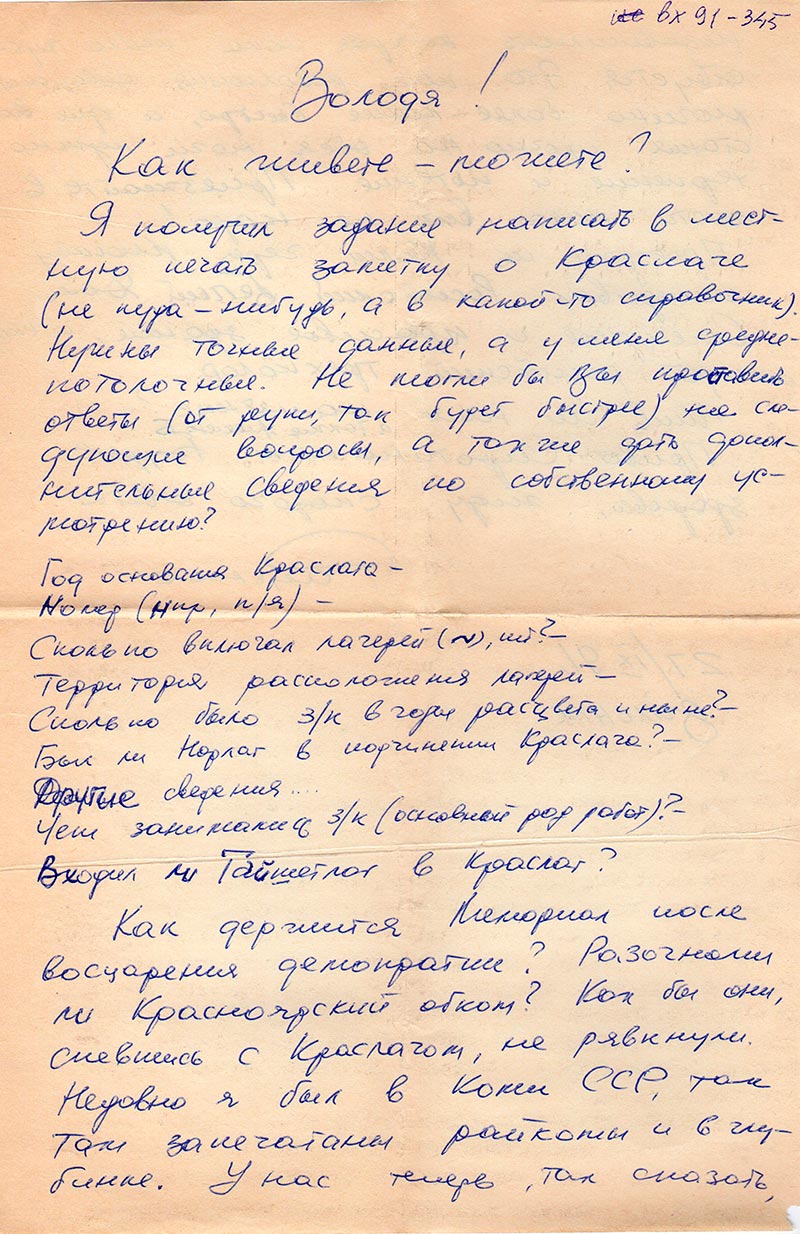 вх 91-345
Володя!
Как живете - можете?
Я получил задание написать в мест-
ную печать заметку о Краслаге
(не куда-нибудь, а в какой-то справочник).
Нужны точные данные, а у меня средне-
потолочные. Не могли бы Вы проставить
ответы (от руки, так будет быстрее) на сле-
дующие вопросы, а также дать допол-
нительные сведения по собственному ус-
мотрению?
Год основания Краслага -
Номер (нпр, п/я) -
Сколько включал лагерей (~), шт? -
Территория расположения лагерей -
Сколько было з/к в годы расцвета и ныне? -
Был ли Норлаг в подчинении Краслага? -
Другие сведения....
Чем занимались з/к (основный род работ)? -
Входил ли Тайшетлаг в Краслаг?
Как держится Мемориал после
воцарения демократии? Разогнали
ли Красноярский обком? Как бы они,
спевшись с Краслагом, не рявкнули.
Недавно я был в Коми ССР, так
там запечатаны райкомы и в глу-
бинке. У нас теперь, так сказать,